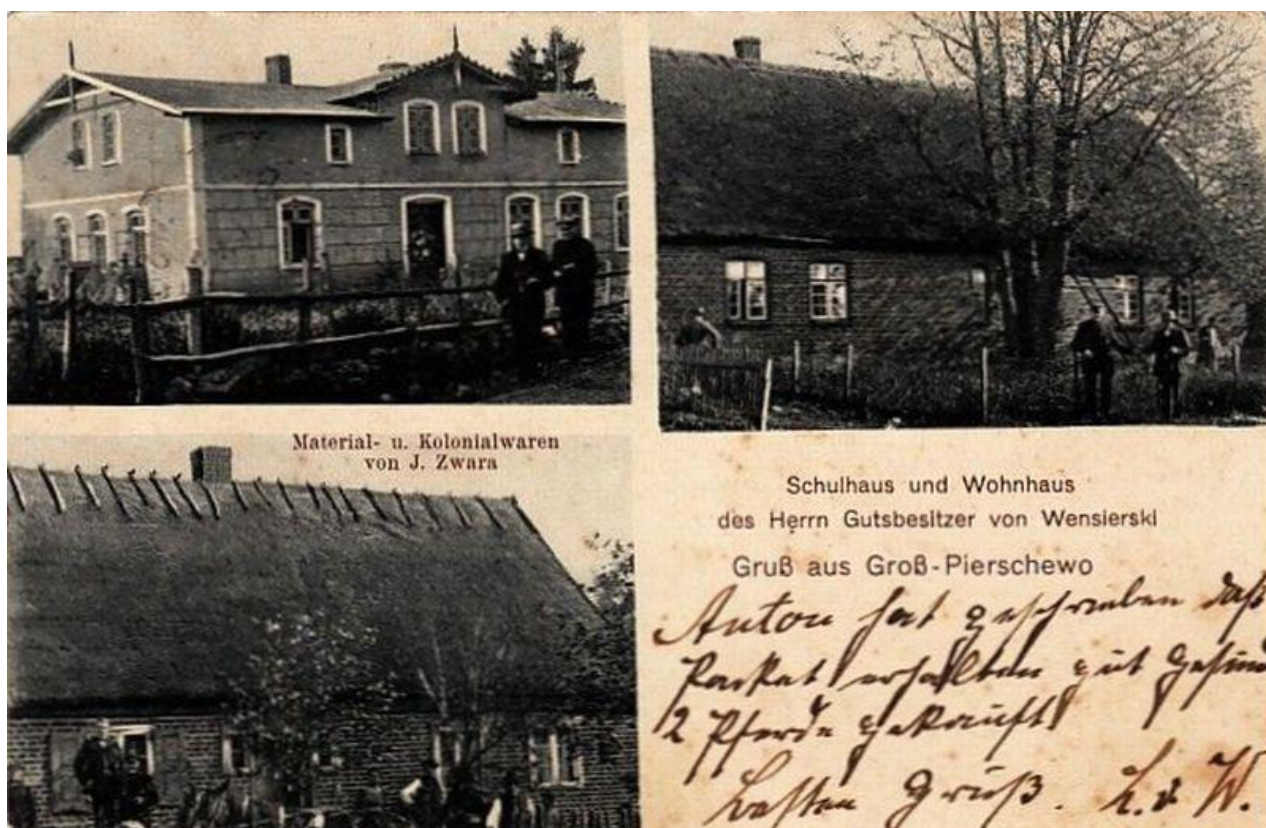 Material- u. Kolonialwaren
von J. Zwara
Schulhaus und Wohnhaus
des Herrn Gutsbesitzer von Wensierski
Gruß aus Groß-Pierschewo
Anton hat geschrieben daß
Packet erhalten gut gesund
2 Pferde gekauft
besten Gruß. L. v W.